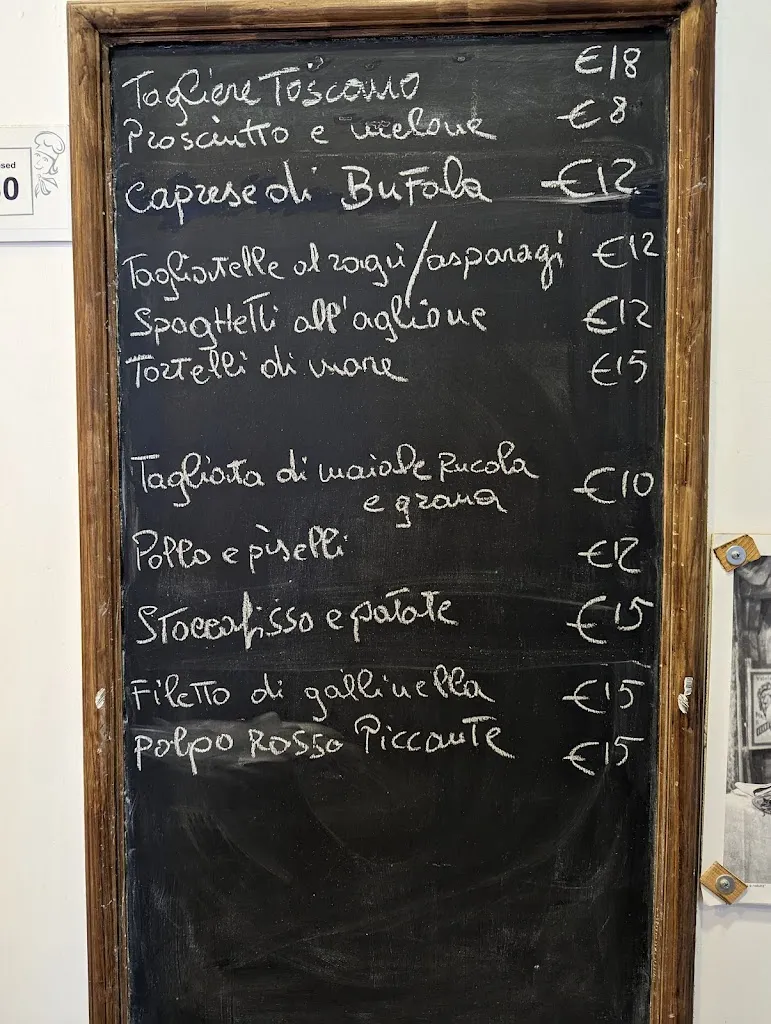 Tagliere Toscano €18
Prosciutto e melone €8
Caprese di Bufala €12
Tagliatelle al ragù/asparagi €12
Spaghetti all'aglione €12
Tortelli di mare €15
Tagliata di maiale Rucola
e grana €10
Pollo e piselli €12
Stoccafisso e patate €15
Filetto di gallinella €15
polpo Rosso Piccante €15